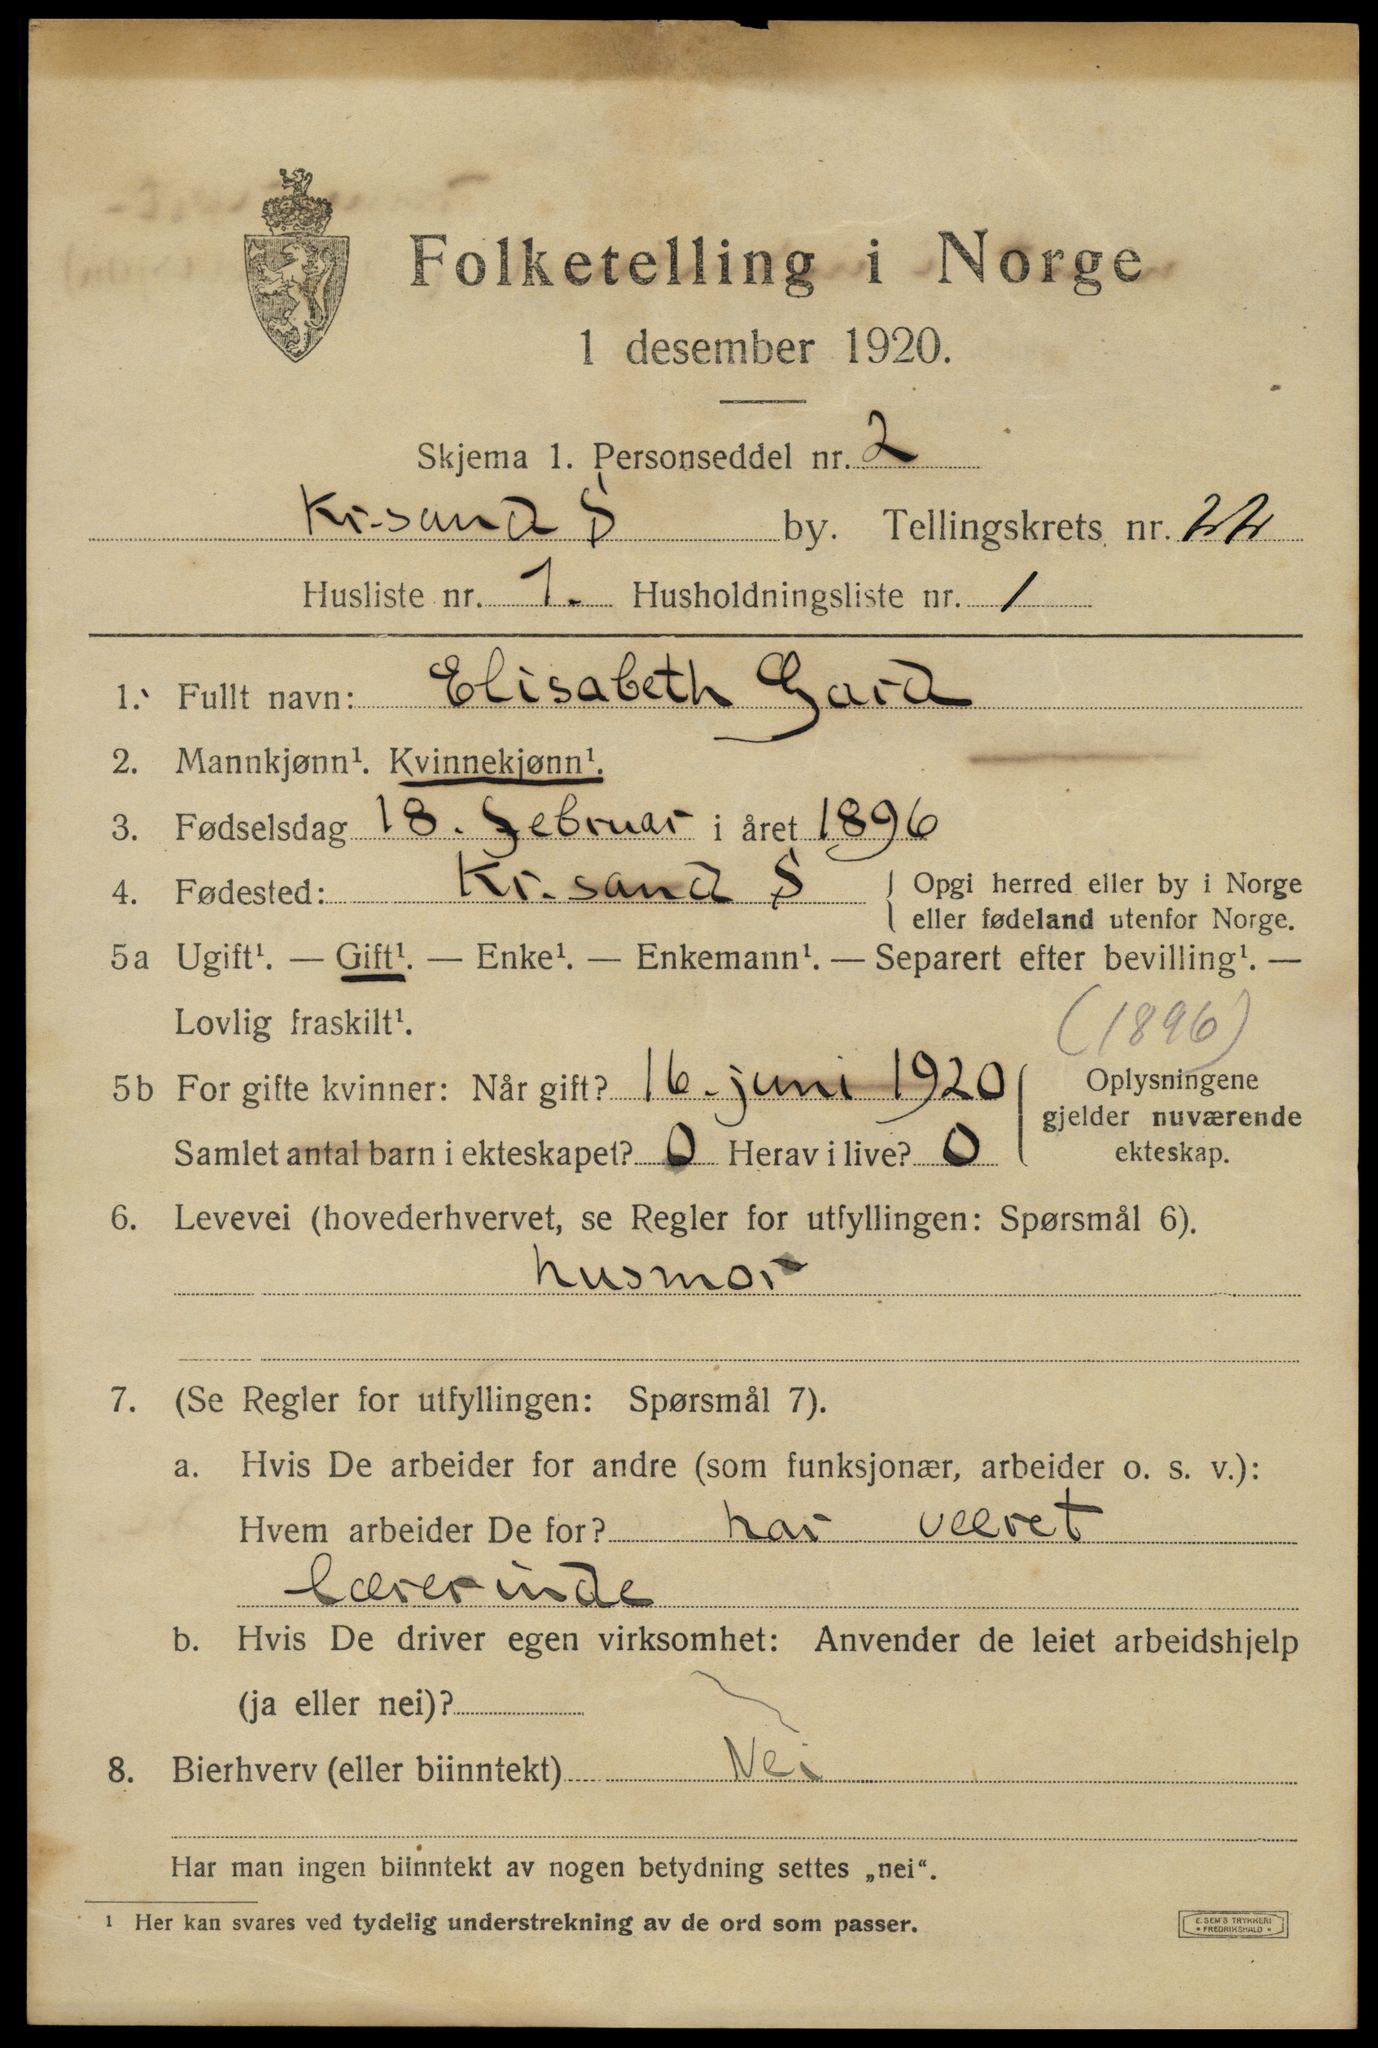 Folketelling i Norge
1 desember 1920.
Skjema 1. Personseddel nr. 2
Kr.sand S by. Tellingskrets nr. 22
Husliste nr. 1. Husholdningsliste nr. 1
1. Fullt navn: Elisabeth Gard
2. Mannkjønn¹. Kvinnekjønn¹.
3. Fødselsdag 18. februar i året 1896
4. Fødested: Kr.sand S { Opgi herred eller by i Norge
eller fødeland utenfor Norge.
5a Ugift¹. — Gift¹. — Enke¹. — Enkemann¹. — Separert efter bevilling¹. —
Lovlig fraskilt¹.
(1896)
5b For gifte kvinner: Når gift? 16. juni 1920 { Oplysningene
gjelder nuværende
Samlet antal barn i ekteskapet? 0 Herav i live? 0 ekteskap.
6. Levevei (hovederhvervet, se Regler for utfyllingen: Spørsmål 6).
husmor
7. (Se Regler for utfyllingen: Spørsmål 7).
a. Hvis De arbeider for andre (som funksjonær, arbeider o. s. v.):
Hvem arbeider De for? har været
lærerinde
b. Hvis De driver egen virksomhet: Anvender de leiet arbeidshjelp
(ja eller nei)?
8. Bierhverv (eller biinntekt) Nei
Har man ingen biinntekt av nogen betydning settes „nei“.
¹ Her kan svares ved tydelig understrekning av de ord som passer.
E. SEM'S TRYKKERI
• FREDRIKSHALD •